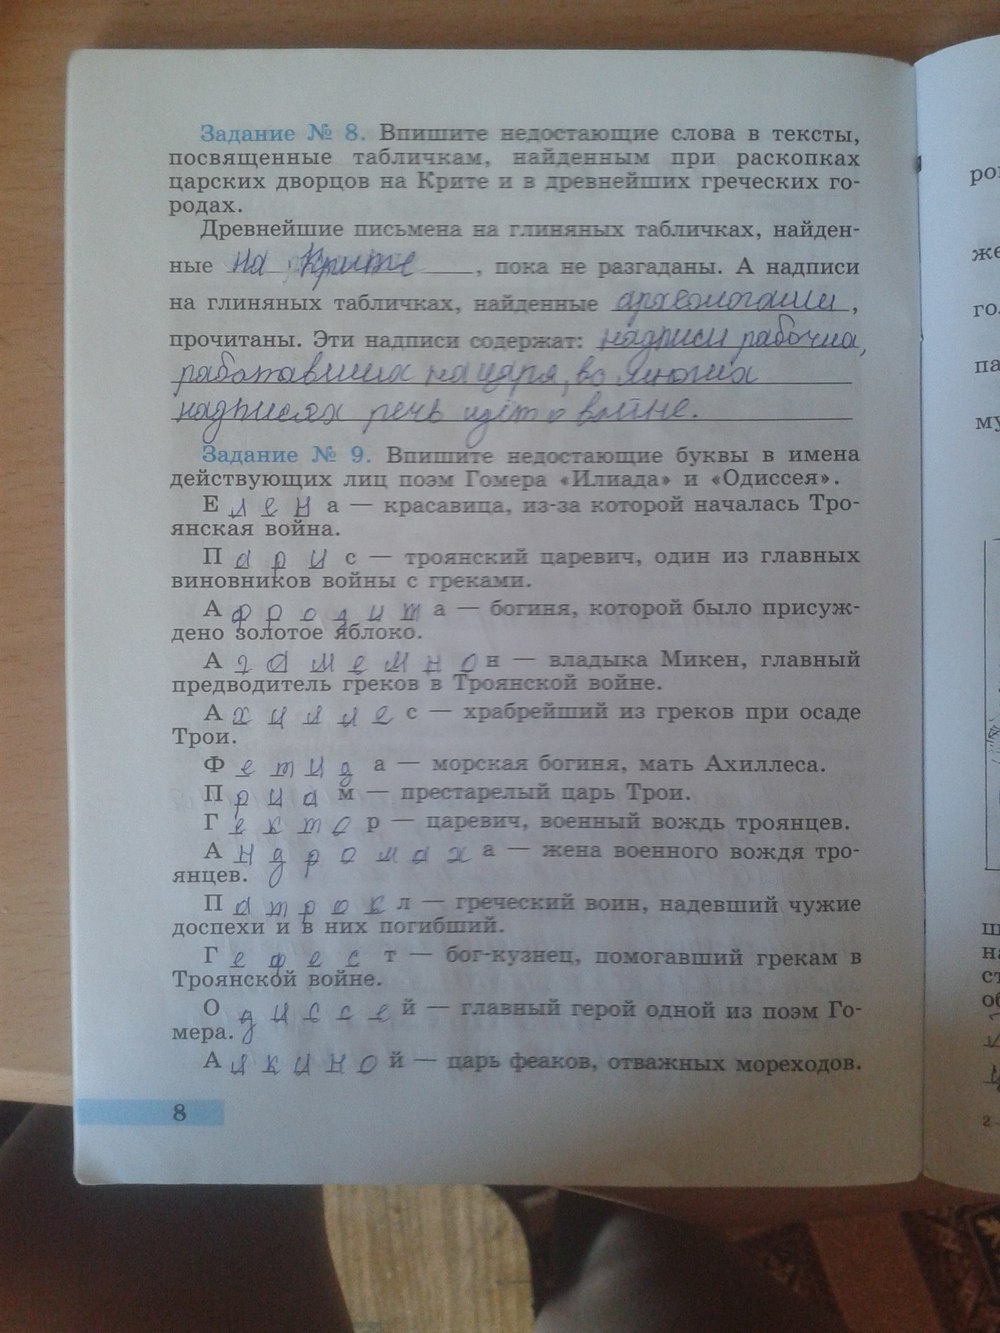 Задание № 8. Впишите недостающие слова в тексты,
посвященные табличкам, найденным при раскопках
царских дворцов на Крите и в древнейших греческих го-
родах.
Древнейшие письмена на глиняных табличках, найден-
ные на Крите, пока не разгаданы. А надписи
на глиняных табличках, найденные археологами,
прочитаны. Эти надписи содержат: надписи рабочих,
работавших на царя, во многих
надписях речь идёт о войне.
Задание № 9. Впишите недостающие буквы в имена
действующих лиц поэм Гомера «Илиада» и «Одиссея».
Елена — красавица, из-за которой началась Тро-
янская война.
Парис — троянский царевич, один из главных
виновников войны с греками.
Афродита — богиня, которой было присуж-
дено золотое яблоко.
Агамемнон — владыка Микен, главный
предводитель греков в Троянской войне.
Ахиллес — храбрейший из греков при осаде
Трои.
Фетида — морская богиня, мать Ахиллеса.
Приам — престарелый царь Трои.
Гектор — царевич, военный вождь троянцев.
Андромаха — жена военного вождя тро-
янцев.
Патрокл — греческий воин, надевший чужие
доспехи и в них погибший.
Гефест — бог-кузнец, помогавший грекам в
Троянской войне.
Одиссей — главный герой одной из поэм Го-
мера.
Алкиной — царь феаков, отважных мореходов.
8